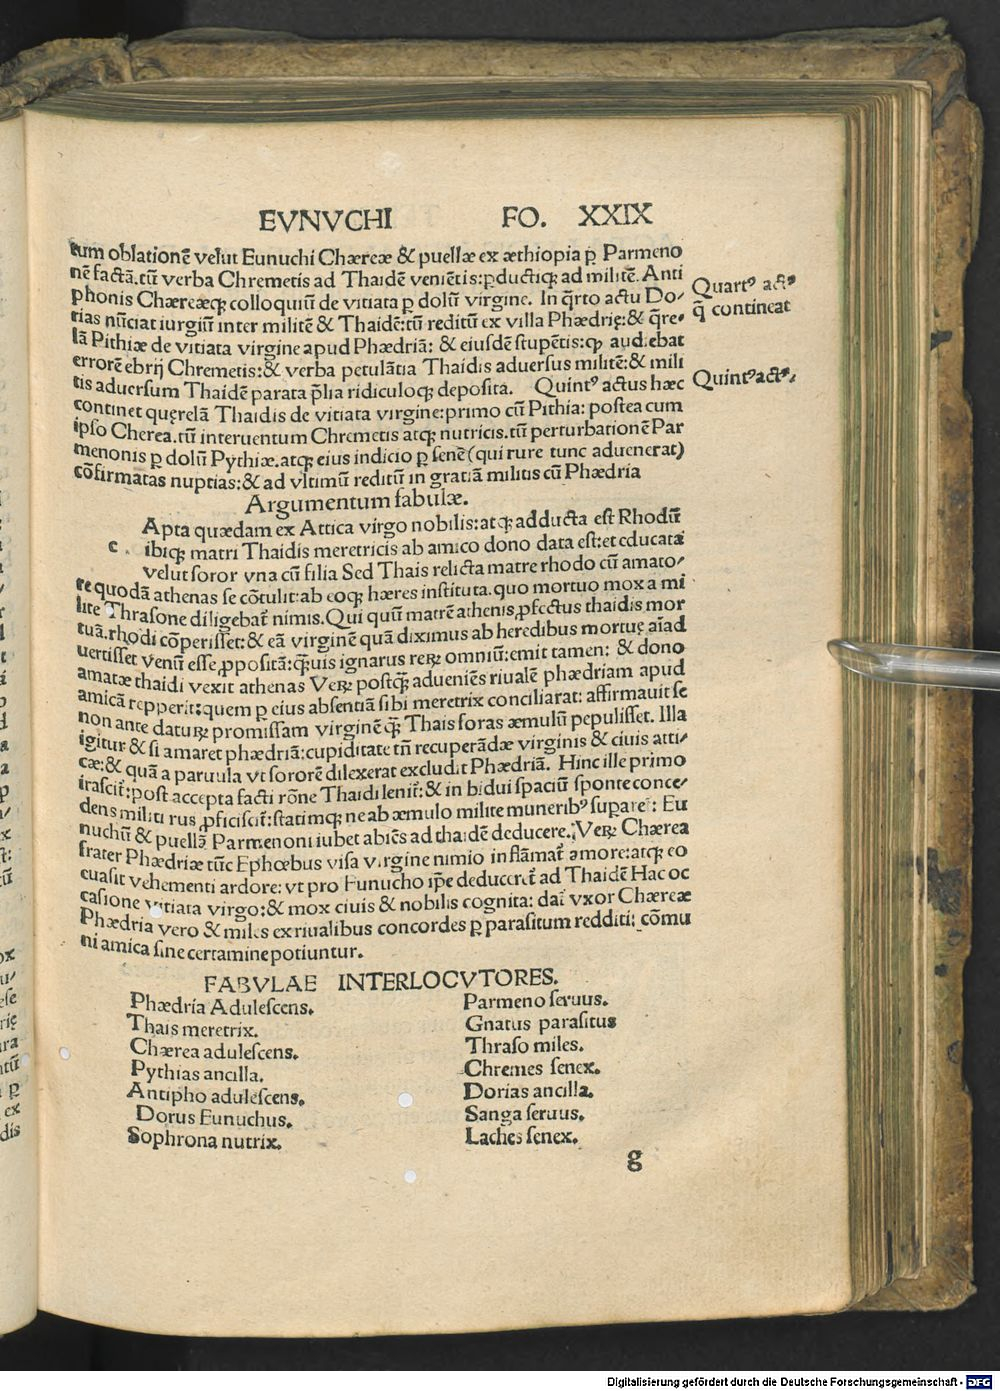 EVNVCHI FO. XXIX
tum oblationē velut Eunuchi Chæreæ & puellæ ex æthiopia ꝑ Parmeno
nē factā.tū verba Chremetis ad Thaidē veniētis:ꝑductiqꝫ ad militē. Anti
phonis Chæreæqꝫ colloquiū de vitiata ꝑ dolū virgine. In q̄rto actu Do/
rias nūciat iurgiū inter militē & Thaidē:tū reditū ex villa Phædrię:& q̄re/
lā Pithiæ de vitiata virgine apud Phædriā: & eiusdē stupētis:qꝫ audiebat
errorē ebrij Chremetis:& verba petulātia Thaidis aduersus militē:& mili
tis aduersum Thaidē parata p̄lia ridiculoqꝫ deposita. Quintꝰ actus hæc
continet quęrelā Thaidis de vitiata virgine:primo cū Pithia: postea cum
ipso Cherea.tū interuentum Chremetis atqꝫ nutricis.tū perturbationē Par
menonis ꝑ dolū Pythiæ.atqꝫ eius indicio ꝑ senē (qui rure tunc aduenerat)
cōfirmatas nuptias:& ad vltimū reditū in gratiā militis cū Phædria
Quartꝰ actꝰ
q̄ contineat
Quintꝰ actꝰ.
Argumentum fabulæ.
c . Apta quædam ex Attica virgo nobilis:atqꝫ adducta est Rhodū
ibiqꝫ matri Thaidis meretricis ab amico dono data est:et educata
velut soror vna cū filia Sed Thais relicta matre rhodo cū amato/
re quodā athenas se cōtulit:ab eoqꝫ hæres instituta.quo mortuo mox a mi
lite Thrasone diligebat̃ nimis.Qui quū matrē athenis ꝓfectus thaidis mor
tuā.rhodi cōperisset:& eā virginē quā diximus ab heredibus mortuę aīad
uertisset venū esse ꝓpositā:q̄uis ignarus reꝝ omniū:emit tamen: & dono
amatæ thaidi vexit athenas Veꝝ postq̄ꝫ adueniēs riualē phædriam apud
amicā repperit:quem ꝑ eius absentiā sibi meretrix conciliarat: affirmauit se
non ante datuꝝ promissam virginē q̄ꝫ Thais foras æmulū pepulisset. Illa
igitur & si amaret phædriā:cupiditate tn̄ recuperādæ virginis & ciuis atti/
cæ:& quā a paruula vt sororē dilexerat excludit Phædriā. Hinc ille primo
irascit̃:post accepta facti rōne Thaidi lenit̃:& in bidui spaciū sponte conce/
dens militi rus ꝓficiscit̃:statimqꝫ ne ab æmulo milite muneribꝰ superet̃: Eu
nuchū & puellā Parmenoni iubet abiēs ad thaidē deducere. Veꝝ Chærea
frater Phædriæ tūc Ephœbus visa virgine nimio inflāmat̃ amore:atqꝫ eo
euasit vehementi ardore: vt pro Eunucho ip̄e deduceret̃ ad Thaidē Hac oc
casione vitiata virgo:& mox ciuis & nobilis cognita: dat̃ vxor Chæreæ
Phædria vero & miles ex riualibus concordes ꝑ parasitum redditi: cōmu
ni amica sine certamine potiuntur.
FABVLAE INTERLOCVTORES.
Phædria Adulescens. Parmeno seruus.
Thais meretrix. Gnatus parasitus
Chærea adulescens. Thraso miles.
Pythias ancilla. Chremes senex.
Antipho adulescens. Dorias ancilla.
Dorus Eunuchus. Sanga seruus.
Sophrona nutrix. Laches senex.
g
Digitalisierung gefördert durch die Deutsche Forschungsgemeinschaft - DFG